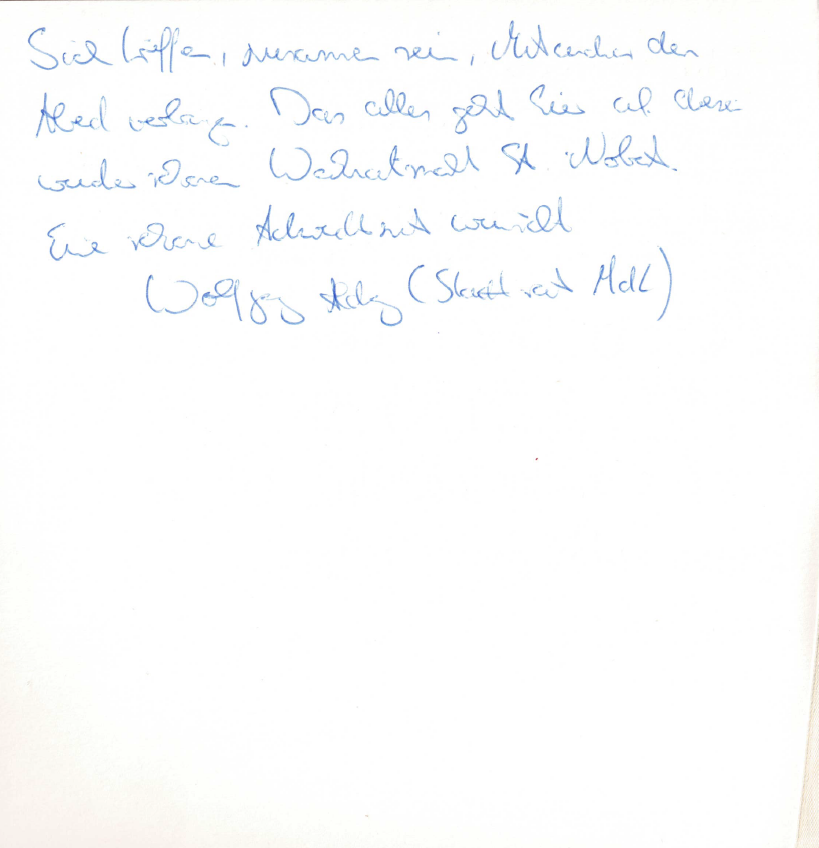 Sich treffen, zusammen sein, Miteinander den
Abend verbringen. Das alles geht hier auf diesem
wunderschönen Weihnachtsmarkt St. Norbert.
Eine schöne Adventszeit wünscht
Wolfgang (Stadtrat MdL)